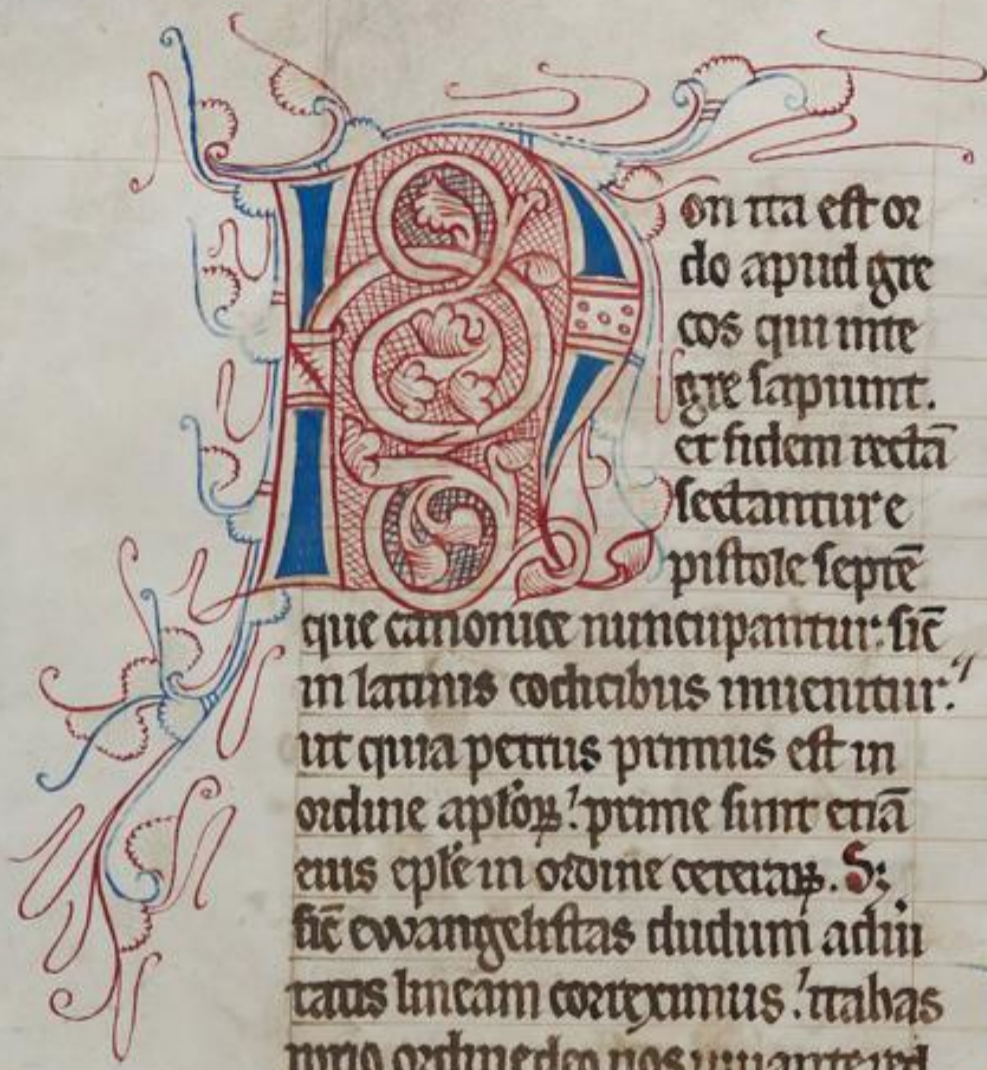 Non ita est or
do apud gre
cos qui inte
gre sapiunt.
et fidem rectā
sectantur e
pistole septē
que canonice nuncupantur: sic̄
in latinis codicibus inuenitur.
ut quia petrus primus est in
ordine aplōꝝ: prime sunt etiā
eius eplē in ordine ceteraꝝ. Sꝫ
sic̄ ewangelistas dudum ad ūi
tatis lineam correximus: ita has
prio ordine deo nos iuuante red